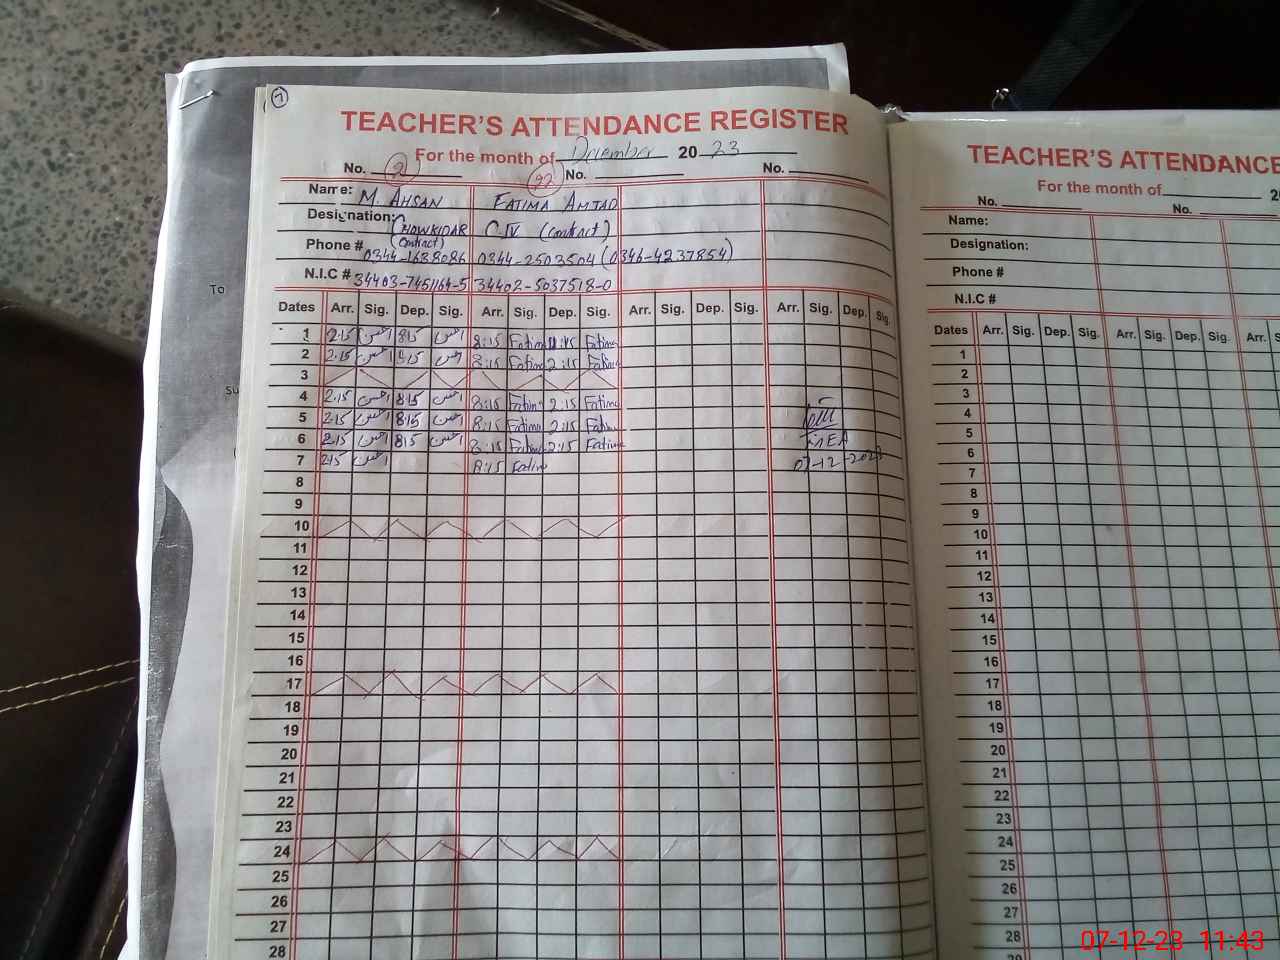 7
TEACHER'S ATTENDANCE REGISTER
For the month of December 2023
No. 21 No. 22 No.
Name: M. AHSAN FATIMA AMJAD
Designation: CHOWKIDAR (Contract) C IV (Contract)
Phone # 0344-1688086 0344-2503504 (0346-4237854)
N.I.C # 34403-7451164-5 34402-5037518-0
Dates Arr. Sig. Dep. Sig. Arr. Sig. Dep. Sig. Arr. Sig. Dep. Sig. Arr. Sig. Dep. Sig.
1 2:15 احسن 8:15 احسن 8:15 Fatima 11:45 Fatima
2 2:15 احسن 8:15 احسن 8:15 Fatima 2:15 Fatima
3
4 2:15 احسن 8:15 احسن 8:15 Fatima 2:15 Fatima
5 2:15 احسن 8:15 احسن 8:15 Fatima 2:15 Fatima
6 2:15 احسن 8:15 احسن 8:15 Fatima 2:15 Fatima
MEA
7 2:15 احسن 8:15 Fatima
07-12-2023
8
9
10
11
12
13
14
15
16
17
18
19
20
21
22
23
24
25
26
27
28
To
Su
TEACHER'S ATTENDANCE
For the month of 20
No. No.
Name:
Designation:
Phone #
N.I.C #
Dates Arr. Sig. Dep. Sig. Arr. Sig. Dep. Sig. Arr. S
1
2
3
4
5
6
7
8
9
10
11
12
13
14
15
16
17
18
19
20
21
22
23
24
25
26
27
28
29
07-12-23 11:43